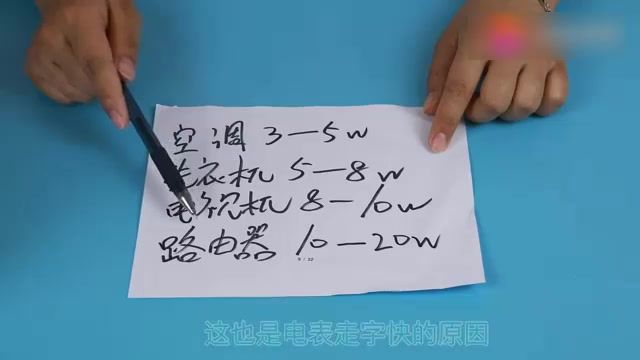 空调 3—5w
洗衣机 5—8w
电视机 8—10w
路由器 10—20w
这也是电表走字快的原因